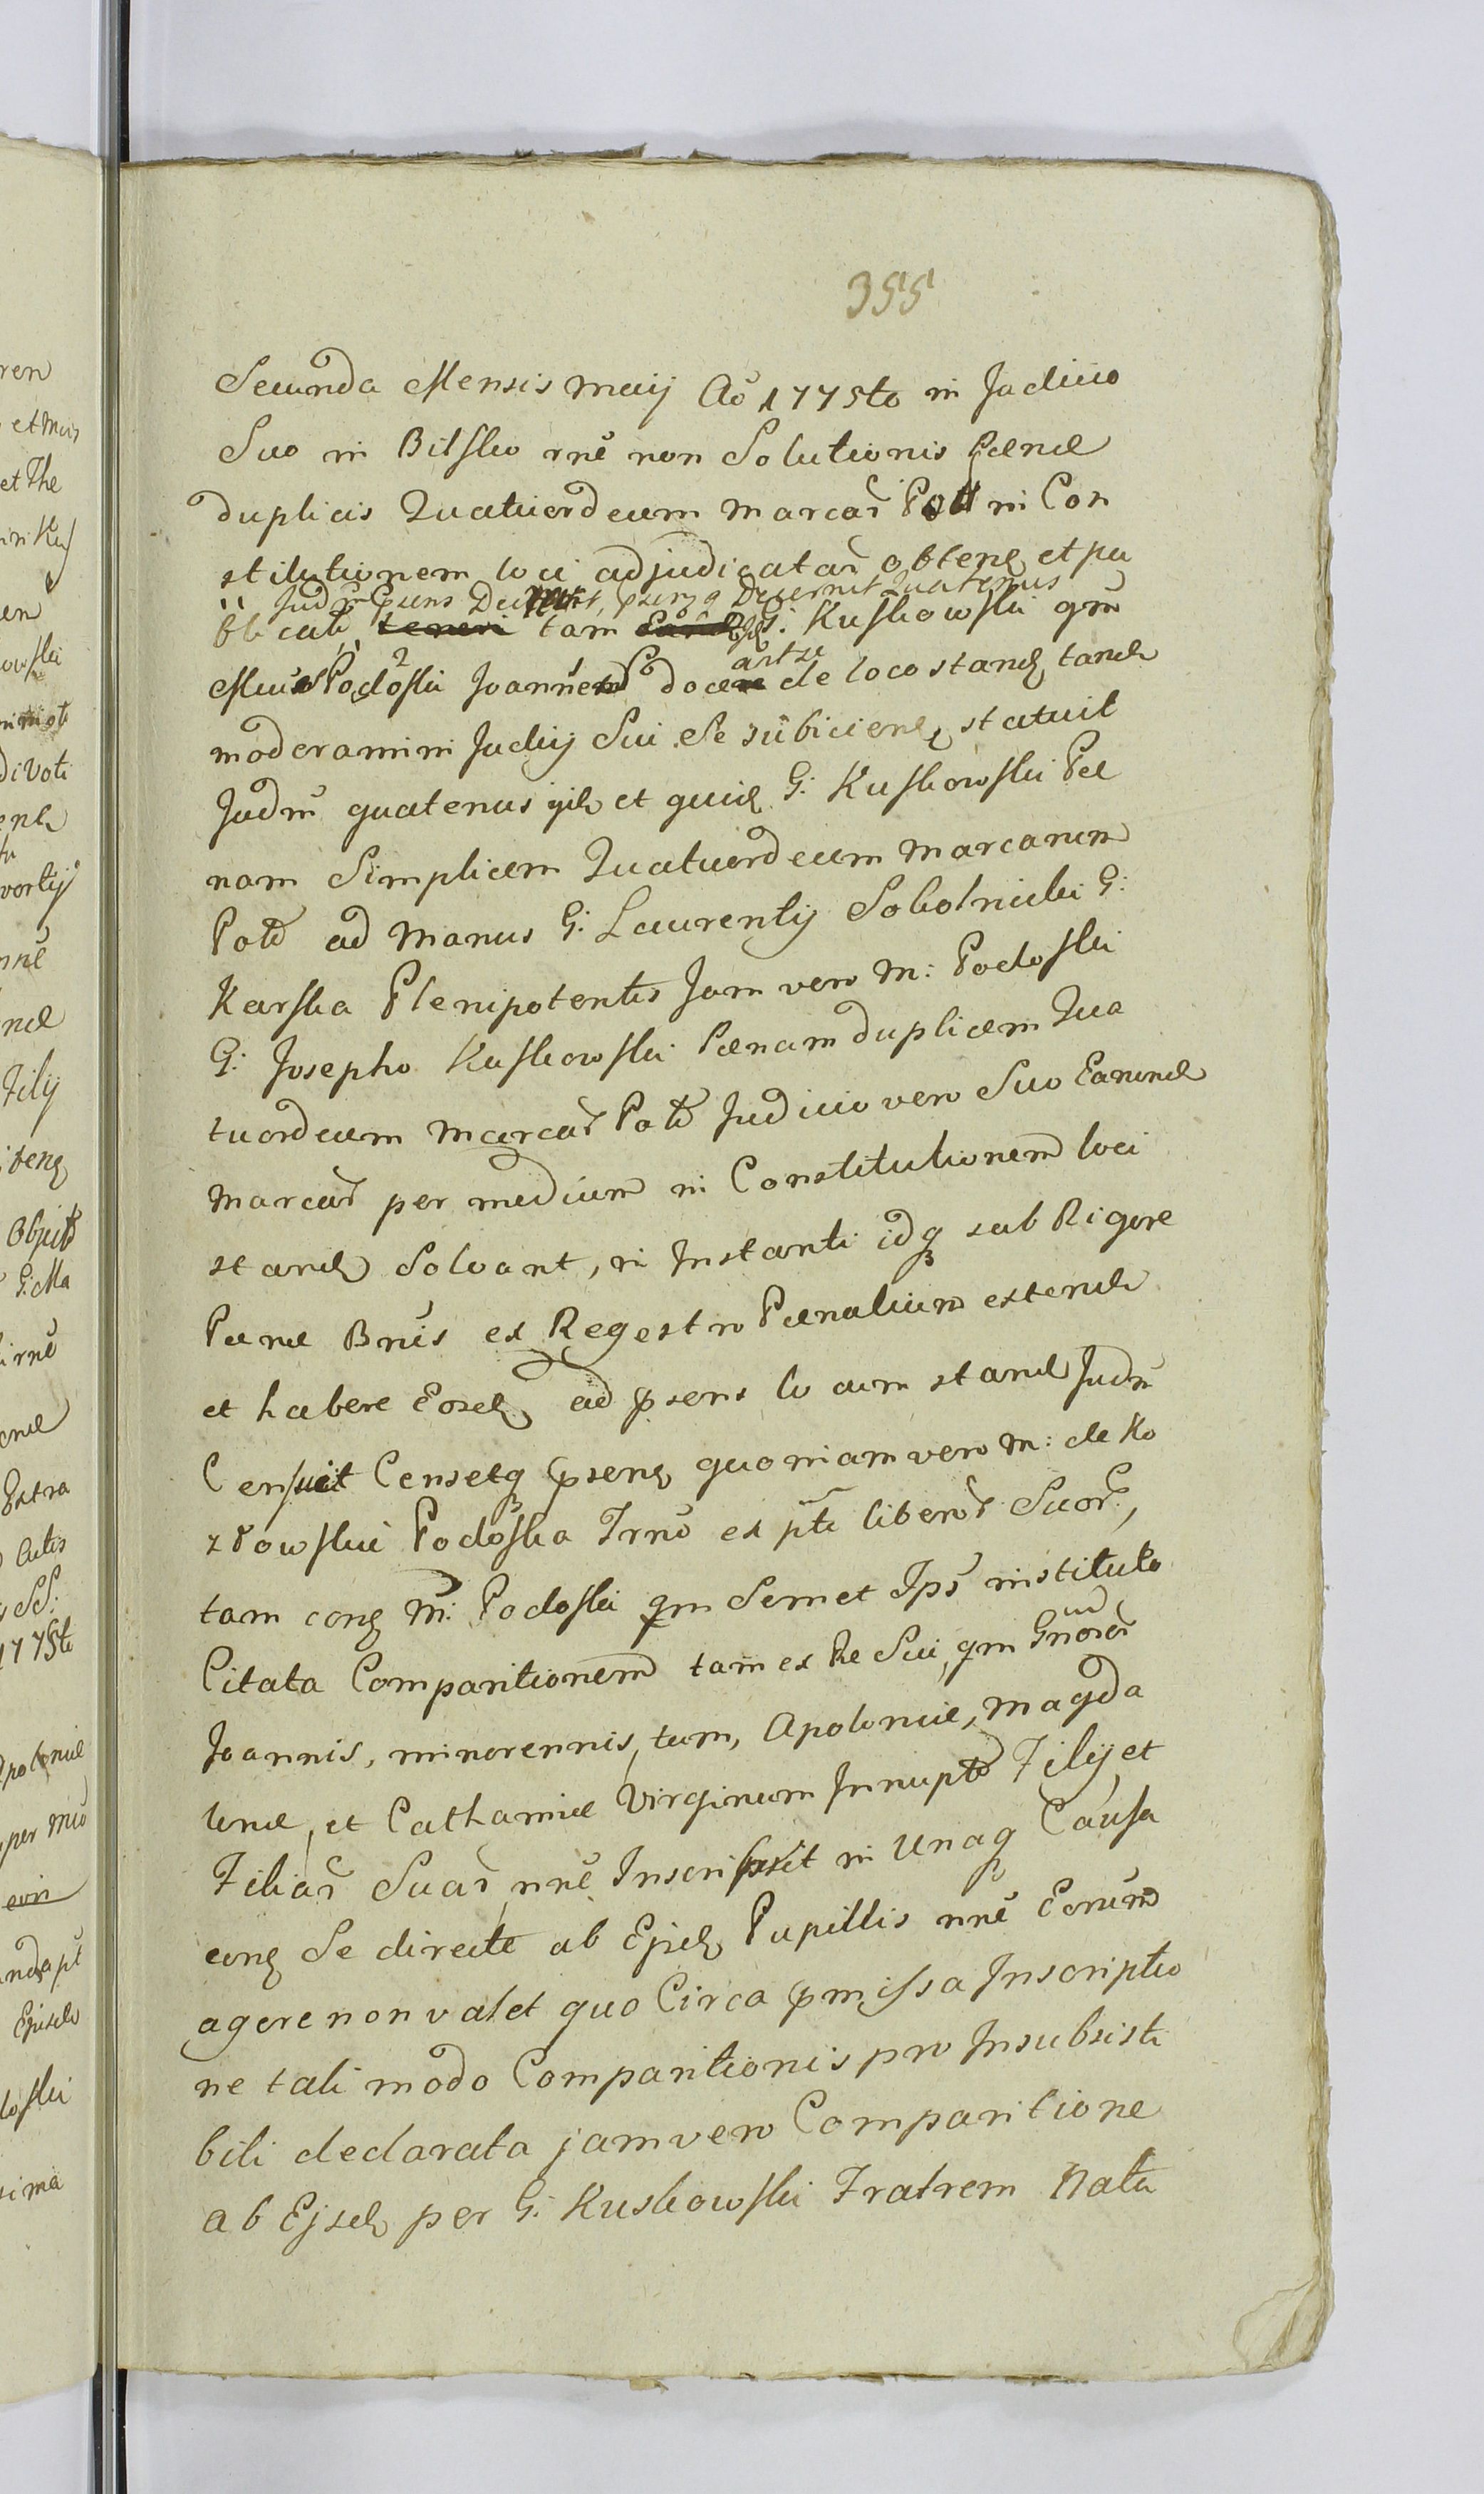 355
Secunda Mensis Maij Aõ 1775to in Judicio
Suo in Bilsko rnẽ non Solutionis Pœnæ
duplicis Quatuordecim Marcar̃ in Con
stitutionem loci adjudicatar̃ obtenq et pu
Judm̃ Decernit Quatenus
blicati, teneri tam G: Kuskowski qm̃
Podoski Joannem de loco standq tandq
moderamini Judicij Sui Se subiicienq statuit
Judm̃ quatenus ijdq et quidq G: Kuskowski Pœ
nam Simplicem Quatuordecim Marcarum
Pol ad Manus G: Laurentij Sobolnicki G:
Karska Plenipotentis Jam vero M: Podoski
G: Josepho Kuskowski Pœnam duplicem Qua
tuordecim Marcar̃ Pol Judicio vero Suo Earundq
Marcar̃ per medium in Constitutionem loci
standq Solvant, in Instanti idq sub Rigore
Pœnæ Bnis ex Regestro Pœnalium extendq
et habere Eosdq ad psens lo cum standq Judm̃
Censuit Censetq psenq quoniam vero M: de Ko
złowskie Podoska Trnõ ex pte liberor̃ Suor̃,
tam conq M: Podoski qm Semet Ips̃ instituto
Citata Comparitionem tam ex Re Sui, qm Gnõror̃
Joannis, minorennis, tum, Apoloniæ, Magda
lenæ, et Catharinæ Virginum Innupt Filij et
Filiar̃ Suar̃ nnẽ Inscripsit in Unaq Causa
conq Se directe ab Ejsdq Pupillis nnẽ Eorum
agere non valet quo Circa pmissa Inscriptio
ne tali modo Comparitionis pro Insubsisti
bili declarata jam vero Comparitione
ab Ejsdq per G: Kuskowski Fratrem Natu